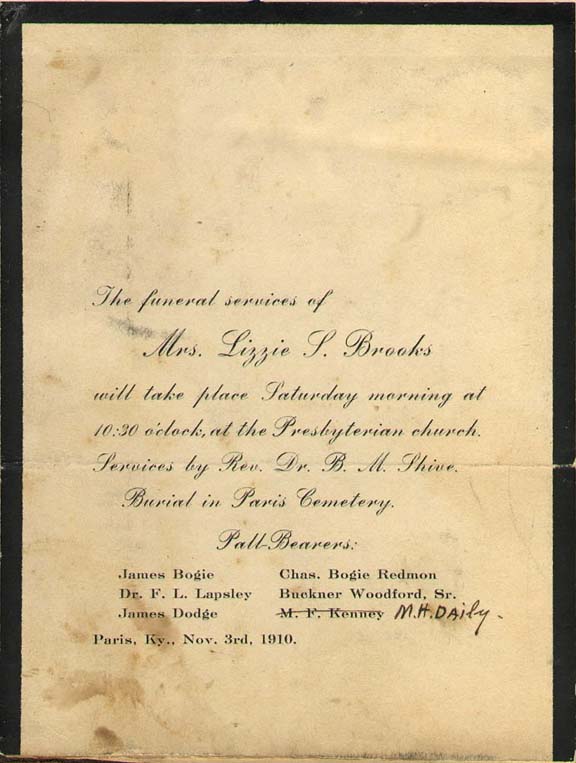 The funeral services of
Mrs. Lizzie S. Brooks
will take place Saturday morning at
10:30 o'clock, at the Presbyterian church.
Services by Rev. Dr. B. M. Shive.
Burial in Paris Cemetery.
Pall-Bearers:
James Bogie Chas. Bogie Redmon
Dr. F. L. Lapsley Buckner Woodford, Sr.
James Dodge M. F. Kenney M.H. DAily.
Paris, Ky., Nov. 3rd, 1910.